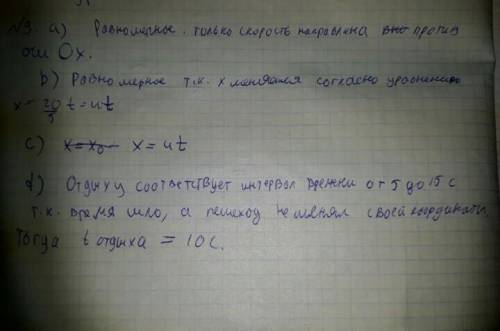 №9. а) Равномерное. только скорость направлена против
оси Ox.
b) Равномерное т.к. x меняется согласно уравнению
x = 20/5 t = 4t
c) x = x₀ x = 4t
d) Отдыху соответствует интервал времени от 5 до 15 с
т.к. время шло, а пешеход не менял своей координаты
Тогда t отдыха = 10 с.